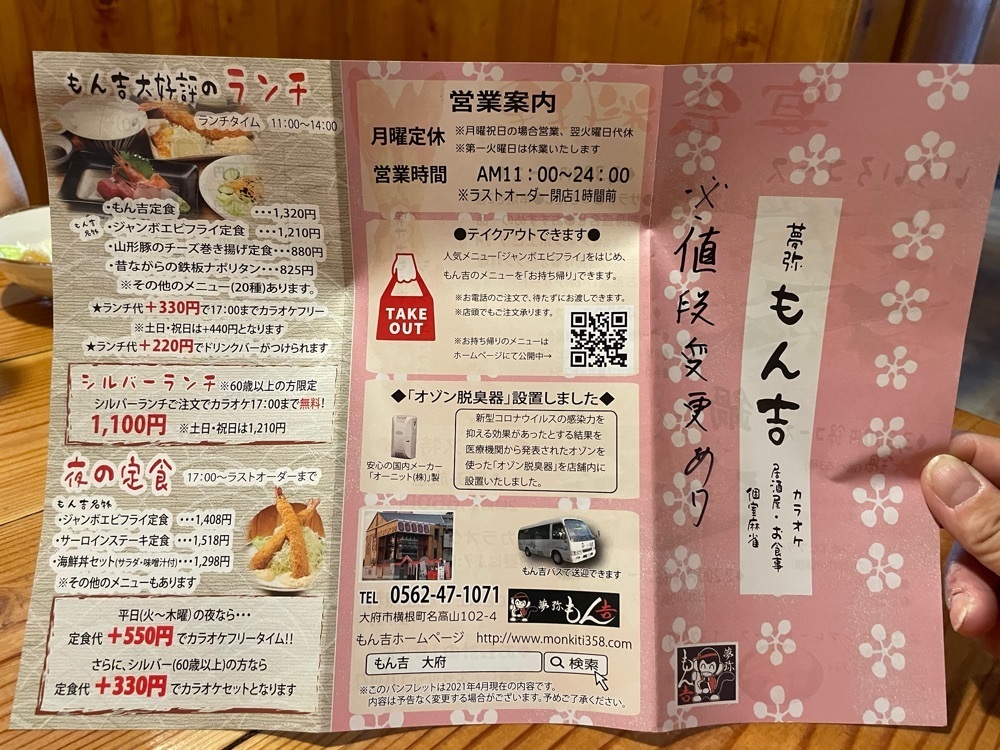 もん吉大好評のランチ
ランチタイム 11:00〜14:00
・もん吉定食 ・・・1,320円
もん吉名物
・ジャンボエビフライ定食 ・・・1,210円
・山形豚のチーズ巻き揚げ定食・・・880円
・昔ながらの鉄板ナポリタン・・・825円
※その他のメニュー(20種)あります。
★ランチ代+330円で17:00までカラオケフリー
※土日・祝日は+440円となります
★ランチ代+220円でドリンクバーがつけられます
シルバーランチ ※60歳以上の方限定
シルバーランチご注文でカラオケ17:00まで無料!
1,100円 ※土日・祝日は1,210円
夜の定食 17:00〜ラストオーダーまで
もん吉名物
・ジャンボエビフライ定食 ・・・1,408円
・サーロインステーキ定食 ・・・1,518円
・海鮮丼セット(サラダ・味噌汁付)・・・1,298円
※その他のメニューもあります
平日(火〜木曜)の夜なら・・・
定食代+550円でカラオケフリータイム!!
さらに、シルバー(60歳以上)の方なら
定食代+330円でカラオケセットとなります
営業案内
月曜定休 ※月曜祝日の場合営業、翌火曜日代休
※第一火曜日は休業いたします
営業時間 AM11:00〜24:00
※ラストオーダー閉店1時間前
●テイクアウトできます●
人気メニュー「ジャンボエビフライ」をはじめ、
もん吉のメニューを「お持ち帰り」できます。
※お電話のご注文で、待たずにお渡しできます。
※店頭でもご注文承ります。
TAKE
OUT
※お持ち帰りのメニューは
ホームページにて公開中→
◆「オゾン脱臭器」設置しました◆
新型コロナウイルスの感染力を
抑える効果があったとする結果を
医療機関から発表されたオゾンを
使った「オゾン脱臭器」を店舗内に
設置いたしました。
安心の国内メーカー
「オーニット(株)」製
もん吉バスで送迎できます
TEL 0562-47-1071
大府市横根町名高山102-4
夢弥 もん吉
もん吉ホームページ http://www.monkiti358.com
もん吉 大府 検索
※このパンフレットは2021年4月現在の内容です。
内容は予告なく変更する場合がございます。予めご了承ください。
※値段変更あり
夢弥 もん吉
カラオケ
居酒屋・お食事
個室麻雀
夢弥
もん吉